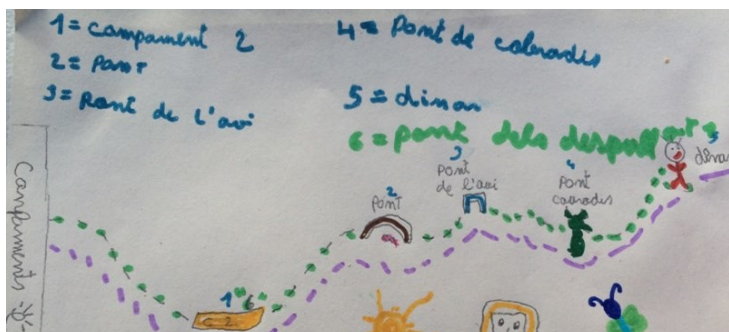 1= campament 2
2= Pont
3= Pont de l'avi
4= Pont de cabradis
5= dinar
6= pont dels despullats
Campaments
2
Pont
3
Pont de l'avi
4
Pont cabradis
5
dina
1
6
C-2